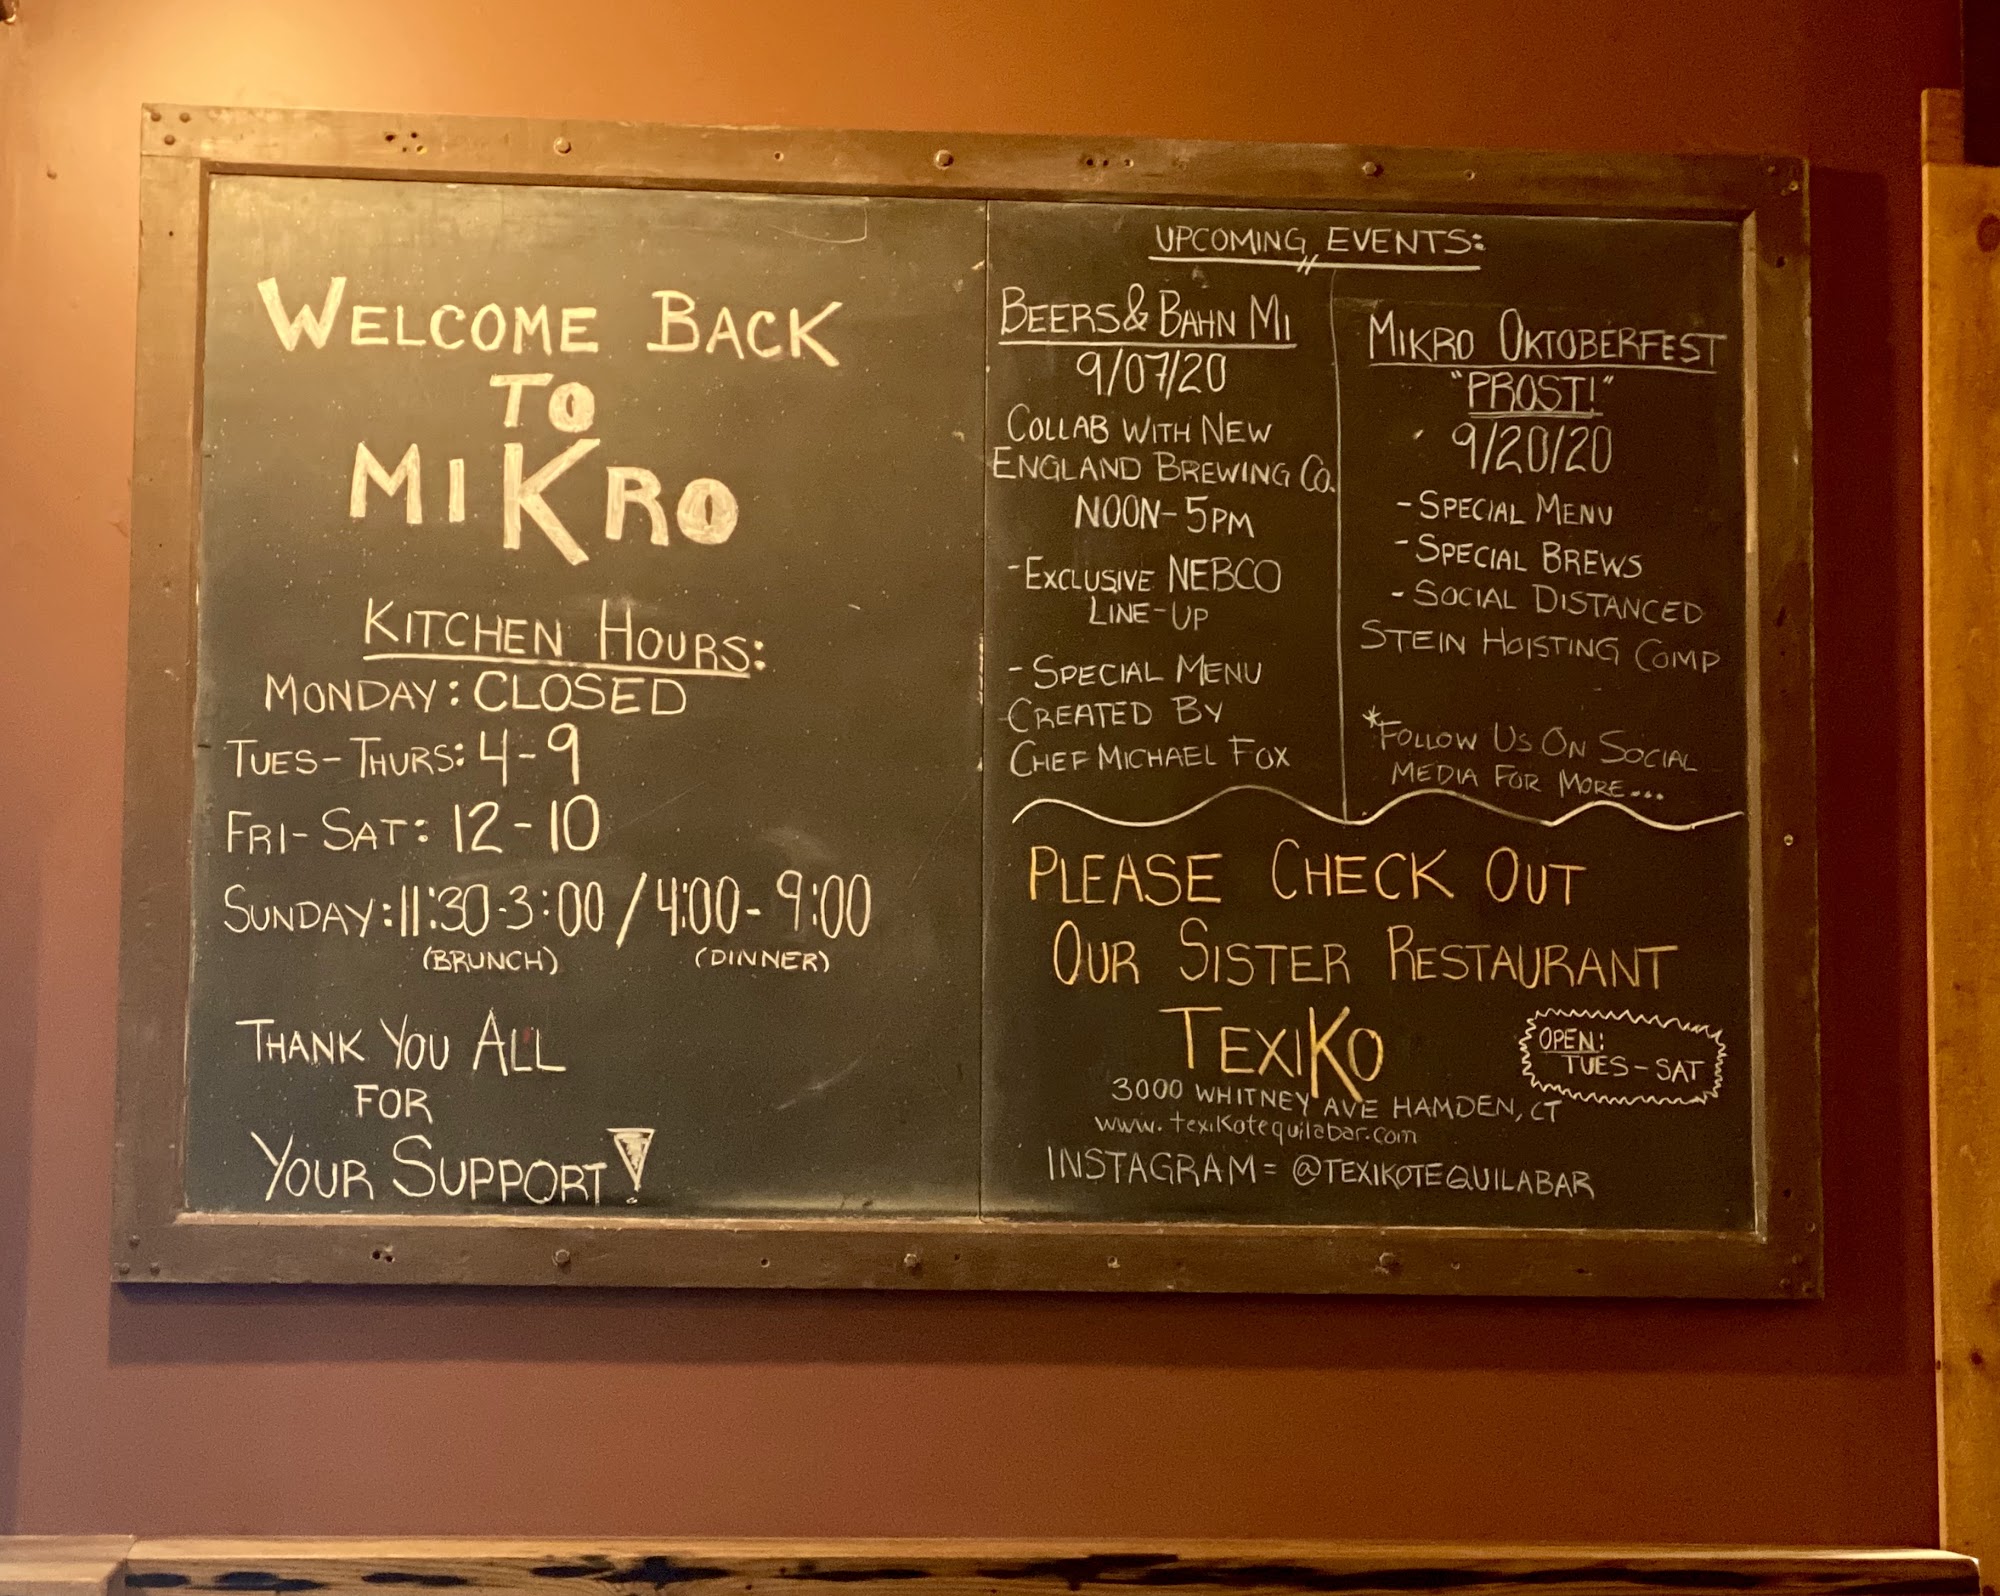 WELCOME BACK
TO
MIKRO
KITCHEN HOURS:
MONDAY: CLOSED
TUES-THURS: 4-9
FRI-SAT: 12-10
SUNDAY: 11:30-3:00 / 4:00-9:00
(BRUNCH) (DINNER)
THANK YOU ALL
FOR
YOUR SUPPORT!
UPCOMING EVENTS:
BEERS & BAHN MI
9/07/20
COLLAB WITH NEW
ENGLAND BREWING CO.
NOON-5PM
-EXCLUSIVE NEBCO
LINE-UP
-SPECIAL MENU
CREATED BY
CHEF MICHAEL FOX
MIKRO OKTOBERFEST
"PROST!"
9/20/20
-SPECIAL MENU
-SPECIAL BREWS
-SOCIAL DISTANCED
STEIN HOISTING COMP
*FOLLOW US ON SOCIAL
MEDIA FOR MORE...
PLEASE CHECK OUT
OUR SISTER RESTAURANT
TEXIKO
OPEN:
TUES-SAT
3000 WHITNEY AVE HAMDEN, CT
www.texikotequilabar.com
INSTAGRAM = @TEXIKOTEQUILABAR